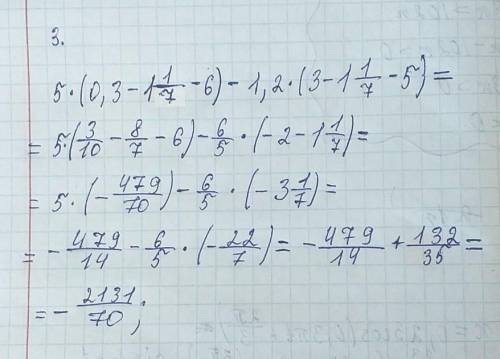 3.
5·(0,3-1 1/7-6)-1,2·(3-1 1/7-5)=
=5·(3/10-8/7-6)-6/5·(-2-1 1/7)=
=5·(-479/70)-6/5·(-3 1/7)=
=-479/14-6/5·(-22/7)=-479/14+132/35=
=-2131/70;